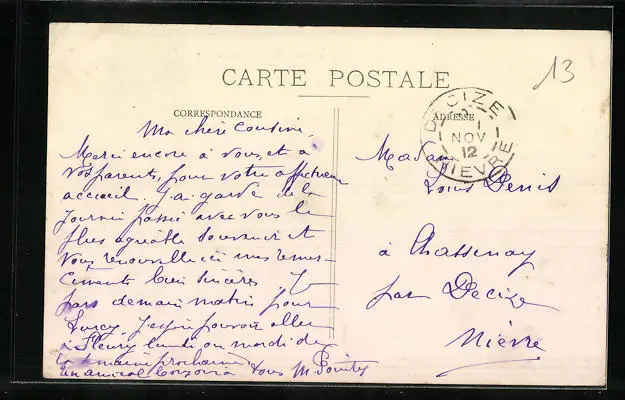 CARTE POSTALE
13
CORRESPONDANCE
Ma chère Cousine,
Merci encore à vous, et à
vos parents, pour votre affectueux
accueil. J'ai gardé de la
journée passée avec vous le
plus agréable souvenir et
vous renouvelle ici mes remer-
ciments bien sincères. Je
pars demain matin pour
Lurcy. J'espère pouvoir aller
à Fleury lundi ou mardi de
la semaine prochaine
un amical bonjour à tous M.
ADRESSE
DECIZE
1
NOV
12
NIEVRE
Madame
Louis Denis
à Chassenay
par Decize
Nièvre